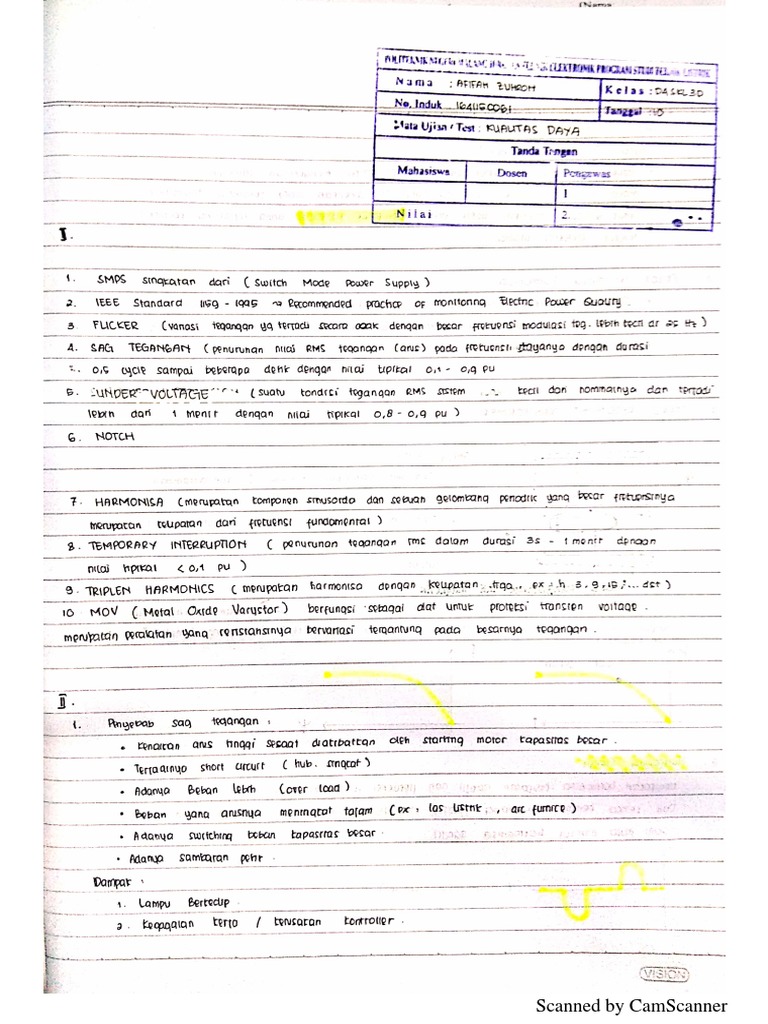 POLITEKNIK NEGERI MALANG ELEKTRONIK PROGRAM STUDI LISTRIK
Nama : AFIFAH ZUHROH
Kelas :
No. Induk
Tanggal
Mata Ujian / Test : KUALITAS DAYA
Tanda Tangan
Mahasiswa Dosen Pengawas
1
Nilai 2.
I.
1. SMPS singkatan dari ( Switch Mode Power Supply )
2. IEEE Standard 1159 - 1995 → Recommended practice of monitoring Electric Power Quality.
3 FLICKER (variasi tegangan yg terjadi secara acak dengan besar frekuensi modulasi teg. lebih kecil dr 25 Hz )
4. SAG TEGANGAN (penurunan nilai RMS tegangan (arus) pada frekuensi dayanya dengan durasi
0,5 cycle sampai beberapa detik dengan nilai tipikal 0,1 - 0,9 pu
5. UNDER VOLTAGE ( suatu kondisi tegangan RMS sistem kecil dari nominalnya dan terjadi
lebih dari 1 menit dengan nilai tipikal 0,8 - 0,9 pu )
6. NOTCH
7. HARMONISA (merupakan komponen sinusoida dari sebuah gelombang periodik yang besar frekuensinya
merupakan kelipatan dari frekuensi fundamental )
8. TEMPORARY INTERRUPTION ( penurunan tegangan rms dalam durasi 3s - 1 menit dengan
nilai tipikal < 0,1 pu )
9. TRIPLEN HARMONICS ( merupakan harmonisa dengan kelipatan tiga, ex : h 3, 9, 15, ... dst )
10 MOV ( Metal Oxide Varystor ) berfungsi sebagai alat untuk proteksi transien voltage.
merupakan peralatan yang resistansinya bervariasi tergantung pada besarnya tegangan.
II.
1. Penyebab sag tegangan :
• Kenaikan arus tinggi sesaat diakibatkan oleh starting motor kapasitas besar.
• Terjadinya short circuit ( hub. singkat )
• Adanya Beban lebih (over load )
• Beban yang arusnya meningkat tajam ( ex : las listrik, arc furnice )
• Adanya switching beban kapasitas besar.
• Adanya sambaran petir.
Dampak :
1. Lampu Berkedip.
2. Kegagalan kerja / kerusakan kontroller.
VISION
Scanned by CamScanner